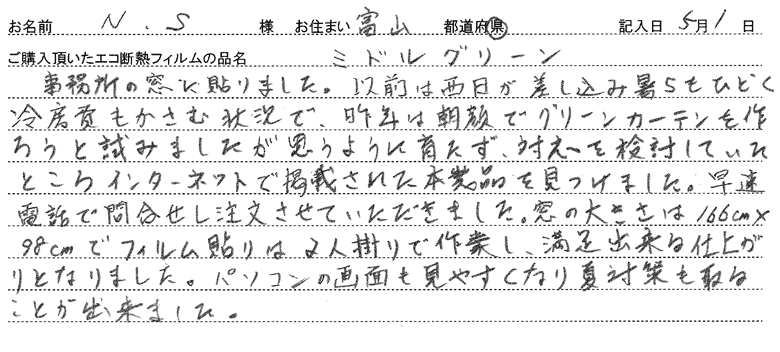 お名前 N.S 様 お住まい 富山 都道府県 記入日 5月1日
ご購入頂いたエコ断熱フィルムの品名 ミドルグリーン
事務所の窓に貼りました。以前は西日が差し込み暑さもひどく
冷房費もかさむ状況で、昨年は朝顔でグリーンカーテンを作
ろうと試みましたが思うように育たず、対応を検討していた
ところインターネットで掲載された本製品を見つけました。早速
電話で問合せし注文させていただきました。窓の大きさは166cm×
98cmでフィルム貼りは2人掛りで作業し、満足出来る仕上が
りとなりました。パソコンの画面も見やすくなり夏対策も取る
ことが出来ました。